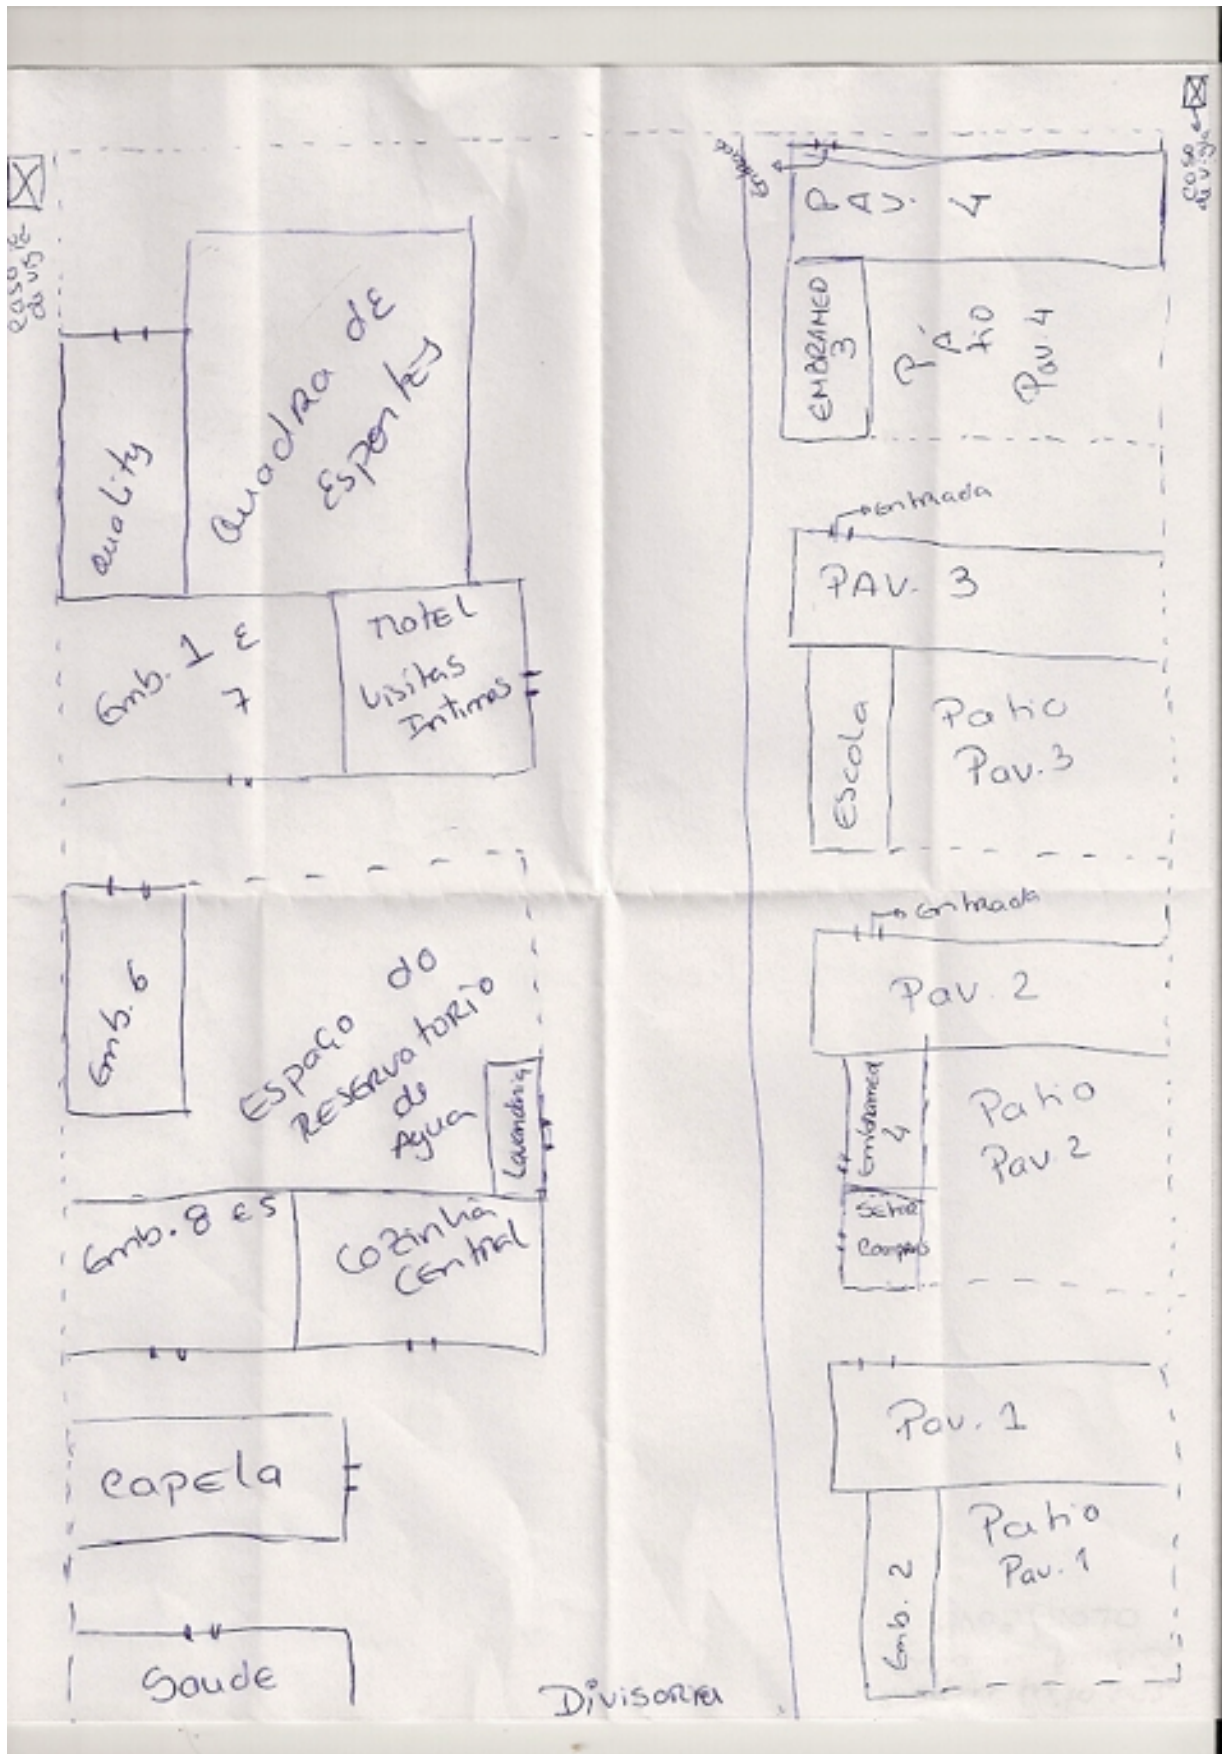 casa
de vigia
Quadra de
Esportes
Quality
Emb. 1 E
7
Motel
Visitas
Intimas
Emb. 6
ESPAÇO do
RESERVATORIO
de
Agua
Lavanderia
Emb. 8 E 5
Cozinha
CENtral
CAPElA
SaudE
Divisoria
casa
de vigia
Entrada
PAV. 4
EMBRAMED
3
PÁtiO
Pav. 4
Entrada
PAV. 3
EScola
Patio
Pav. 3
Entrada
Pav. 2
Embramed
4
Setor
Compras
Patio
Pav. 2
Pav. 1
Emb. 2
Patio
Pav. 1